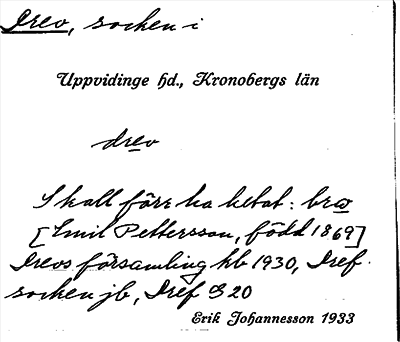 Drev, socken i
Uppvidinge hd., Kronobergs län
drev
Skall förr ha hetat: brev
[Emil Pettersson, född 1869]
Drevs församling kb 1930, Dref
socken jb, Dref G 20
Erik Johannesson 1933